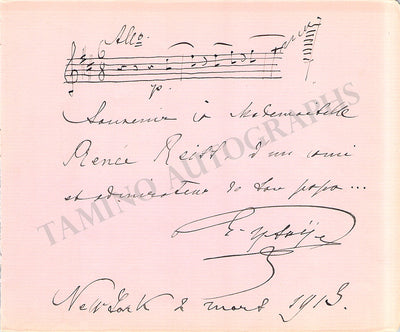 Allo.
p.
Souvenir à Mademoiselle
Renée Reiss d'un ami
et admirateur de son papa...
E. Ysaÿe
New York 2 mars 1913.
TAMINO AUTOGRAPHS